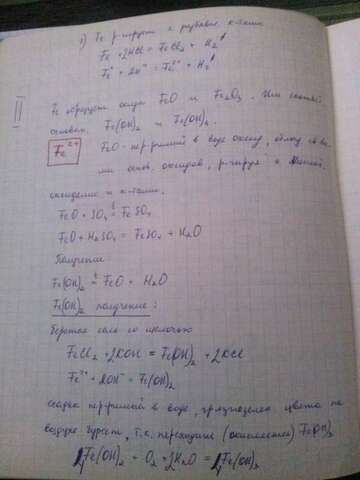 1) Fe р-рирует с рубовые к-тами
Fe + 2HCl = FeCl₂ + H₂↑
Fe° + 2H⁺ = Fe²⁺ + H₂↑
II
Fe образует оксиды FeO и Fe₂O₃. Им
основан. Fe(OH)₂ и Fe(OH)₃.
Fe²⁺
FeO - нер-римый в воде оксид, облад. св-ва-
ми осн. оксидов, р-гируя с
оксидами и к-тами.
FeO + SO₃ =ᵗ FeSO₄
FeO + H₂SO₄ = FeSO₄ + H₂O
Получение
Fe(OH)₂ =ᵗ FeO + H₂O
Fe(OH)₂ получение:
соли со щёлочью
FeCl₂ + 2KOH = Fe(OH)₂ + 2KCl
Fe²⁺ + 2OH⁻ = Fe(OH)₂
осадок нер-римый в воде, цвета на
воздухе буреет, т.к. переходит (окисляется) Fe(OH)₃
4Fe(OH)₂ + O₂ + 2H₂O = 4Fe(OH)₃